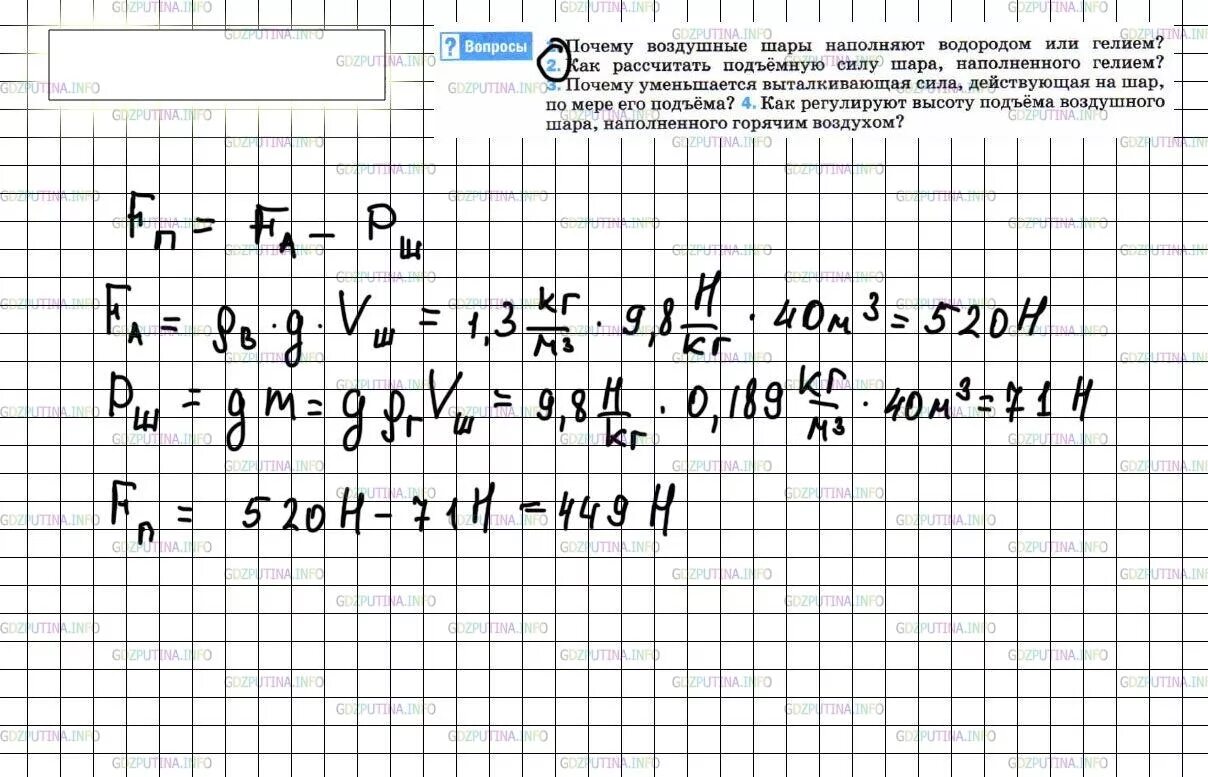 ? Вопросы
Почему воздушные шары наполняют водородом или гелием?
2. Как рассчитать подъёмную силу шара, наполненного гелием?
3. Почему уменьшается выталкивающая сила, действующая на шар,
по мере его подъёма? 4. Как регулируют высоту подъёма воздушного
шара, наполненного горячим воздухом?
Fп = FА − Pш
FА = ρв · g · Vш = 1,3 кг/м3 · 9,8 Н/кг · 40м³ = 520Н
Pш = gm = gρгVш = 9,8 Н/кг · 0,189 кг/м3 · 40м³ = 71 Н
Fп = 520Н − 71Н = 449 Н
GDZPUTINA.INFO